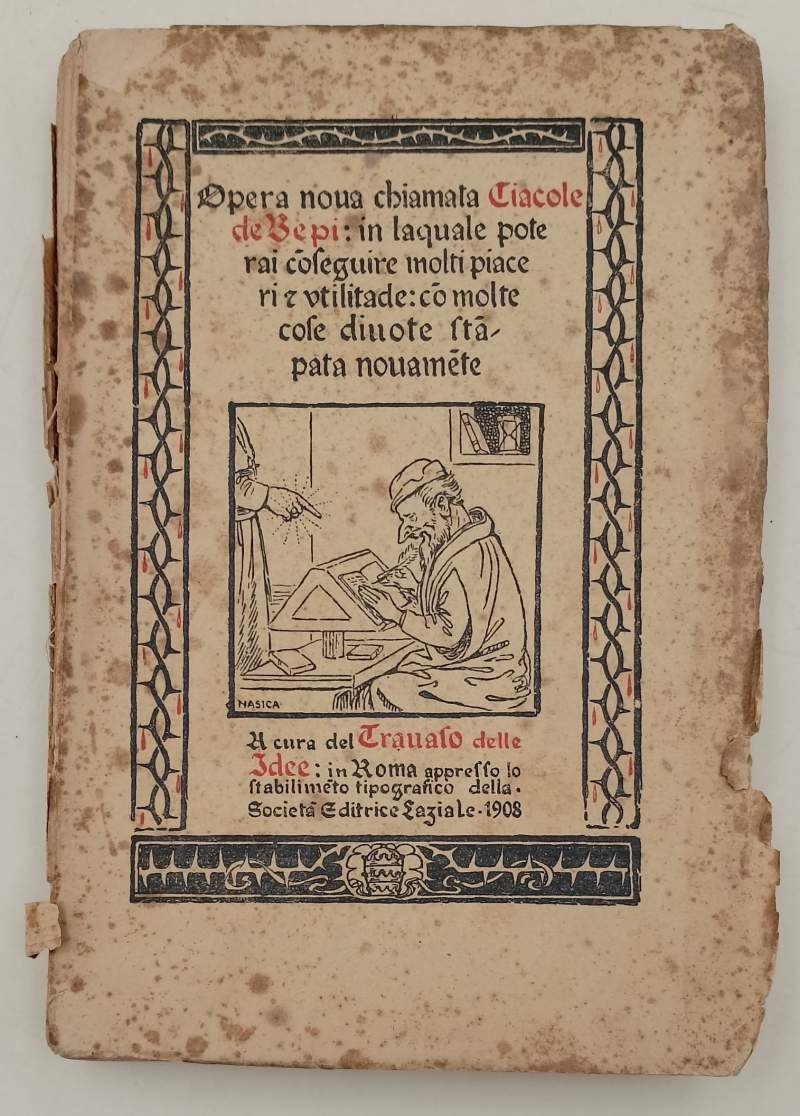 Opera noua chiamata Ciacole
de Bepi: in laquale pote
rai cōſeguire molti piace
ri ⁊ vtilitade: cō molte
coſe diuote ſtā-
pata nouamēte
NASICA
A cura del Trauaſo delle
Idee: in Roma appreſſo lo
ſtabilimēto tipografico della.
Società Editrice Laziale·1908